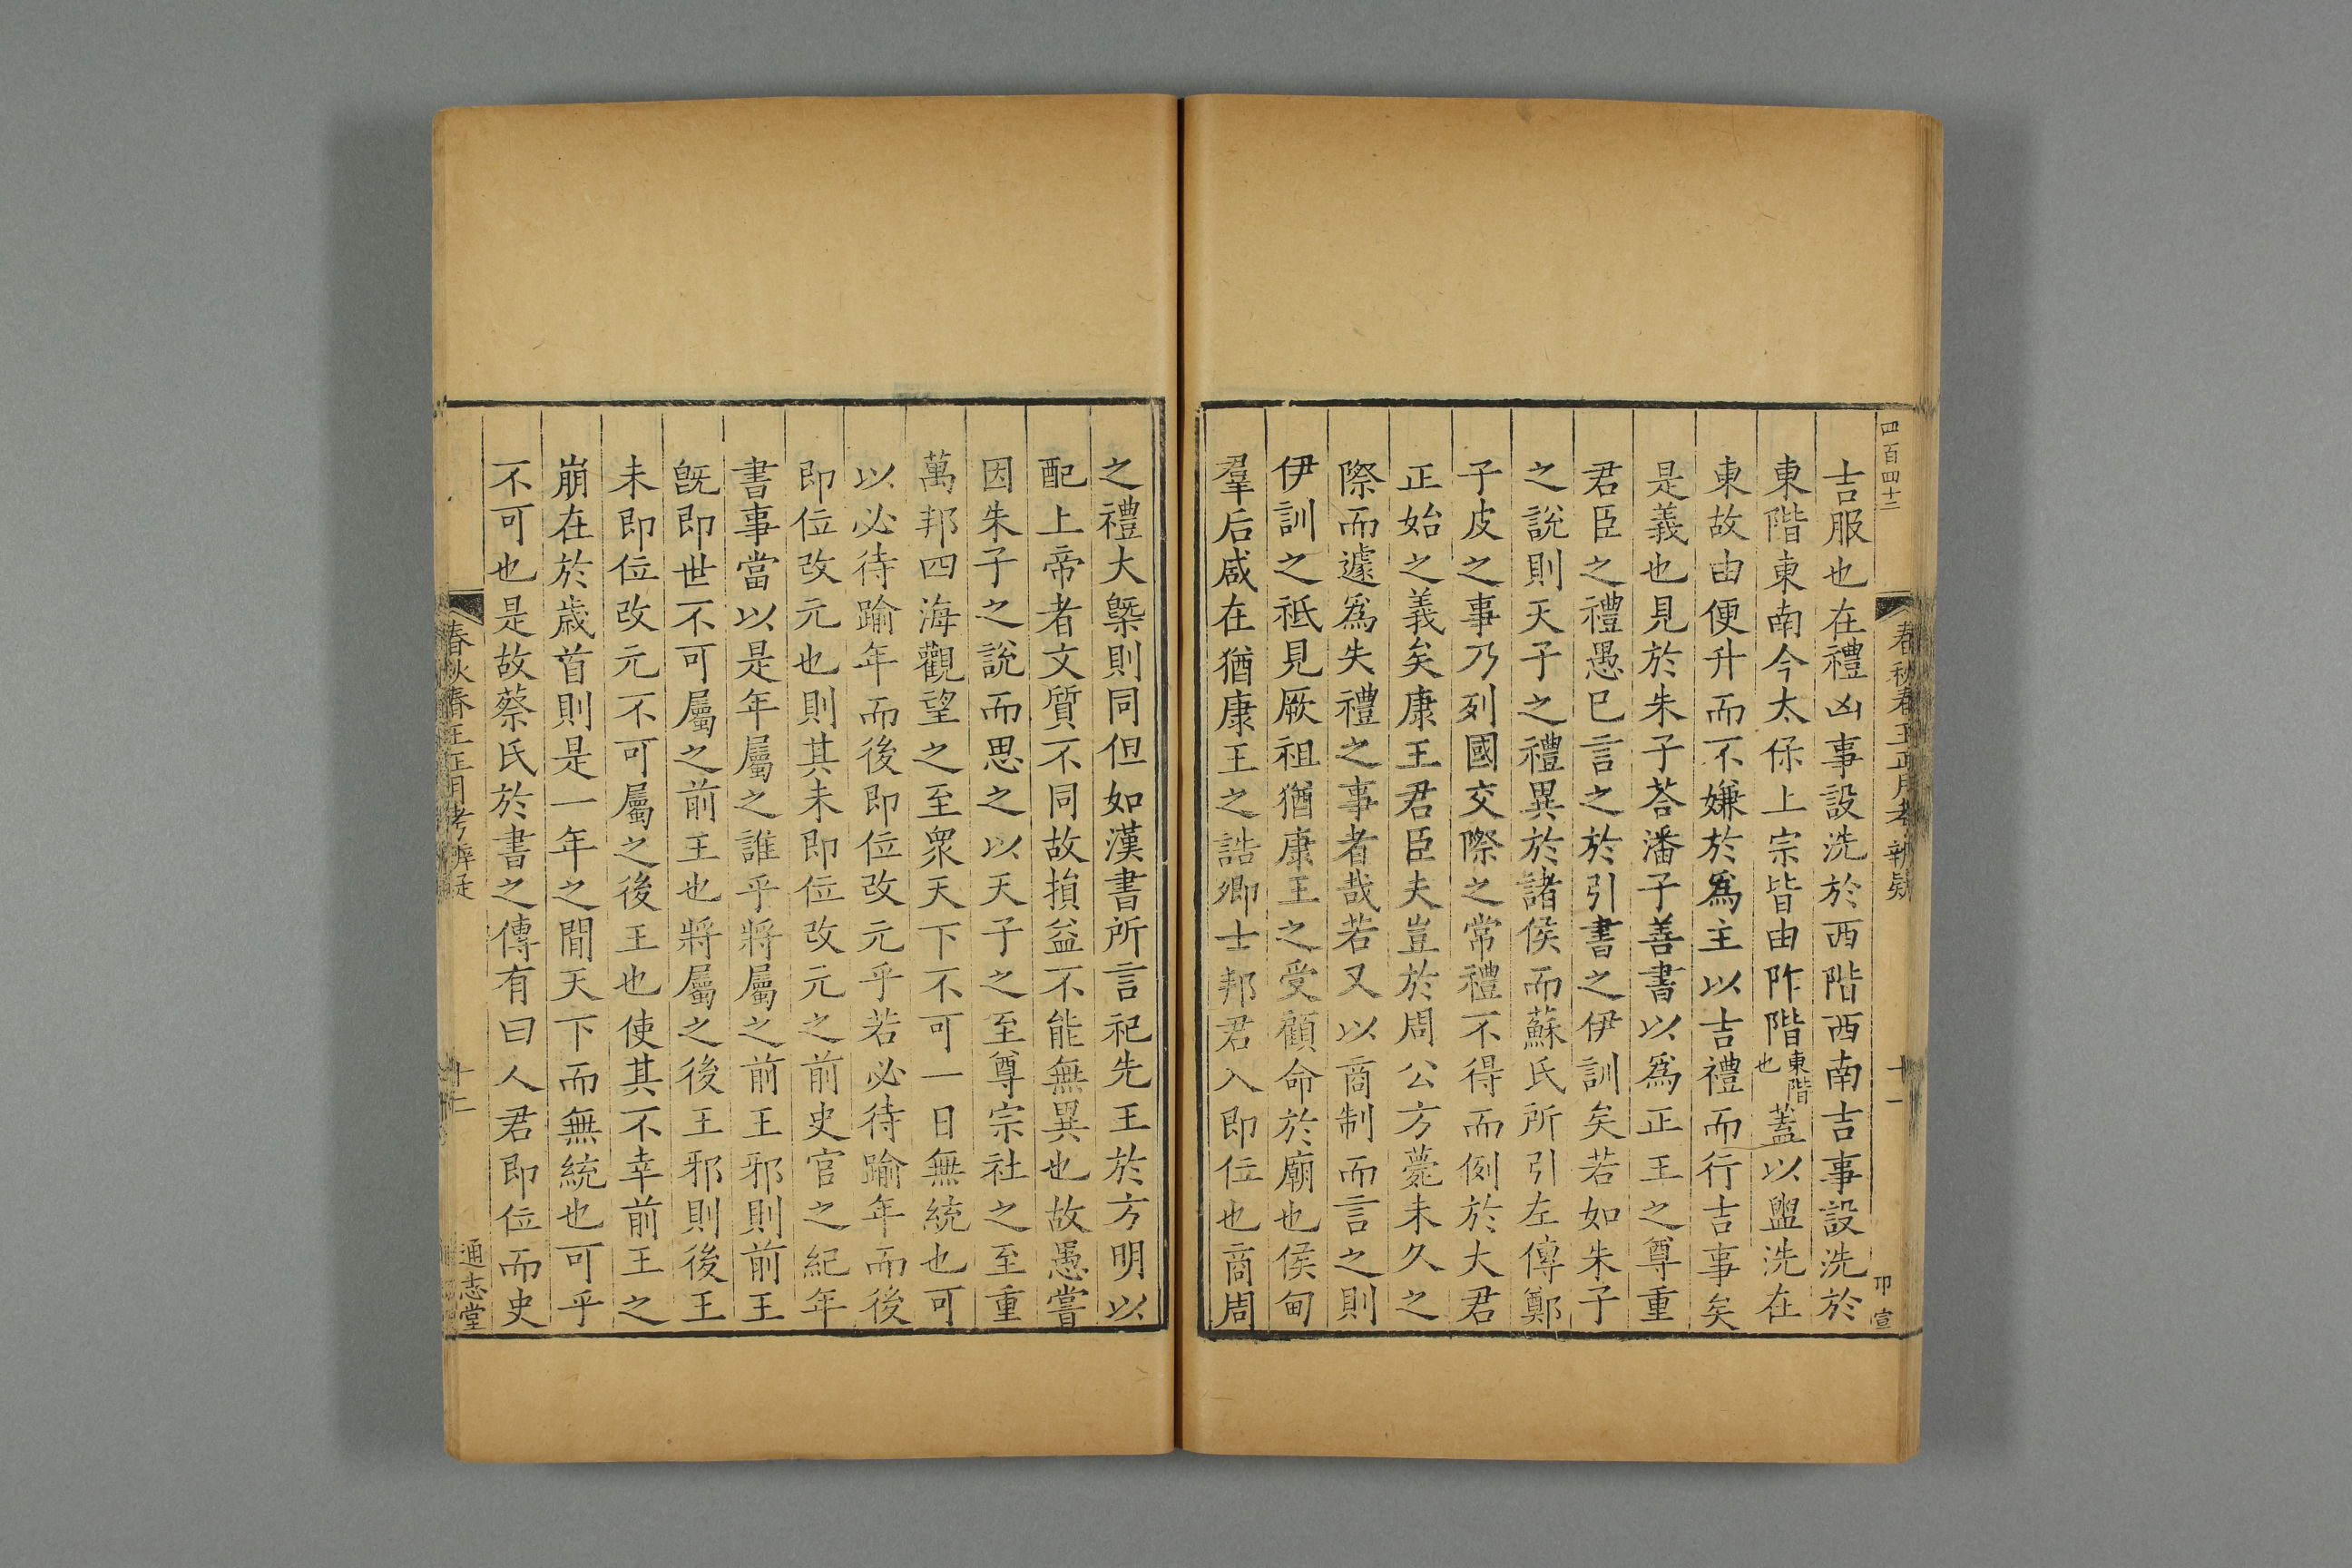 四百四十三
春秋春王正月考辨疑
十一
卭宣
吉服也在禮凶事設洗於西階西南吉事設洗於
東階東南今太保上宗皆由阼階東階也蓋以盥洗在
東故由便升而不嫌於爲主以吉禮而行吉事矣
是義也見於朱子荅潘子善書以爲正王之尊重
君臣之禮愚已言之於引書之伊訓矣若如朱子
之說則天子之禮異於諸侯而蘇氏所引左傳鄭
子皮之事乃列國交際之常禮不得而例於大君
正始之義矣康王君臣夫豈於周公方薨未久之
際而遽爲失禮之事者哉若又以商制而言之則
伊訓之祗見厥祖猶康王之受顧命於廟也侯甸
羣后咸在猶康王之誥卿士邦君入即位也商周
之禮大槩則同但如漢書所言祀先王於方明以
配上帝者文質不同故損益不能無異也故愚嘗
因朱子之說而思之以天子之至尊宗社之至重
萬邦四海觀望之至衆天下不可一日無統也可
以必待踰年而後即位改元乎若必待踰年而後
即位改元也則其未即位改元之前史官之紀年
書事當以是年屬之誰乎將屬之前王邪則前王
旣即世不可屬之前王也將屬之後王邪則後王
未即位改元不可屬之後王也使其不幸前王之
崩在於歲首則是一年之間天下而無統也可乎
不可也是故蔡氏於書之傳有曰人君即位而史
春秋春王正月考辨疑
十二
通志堂